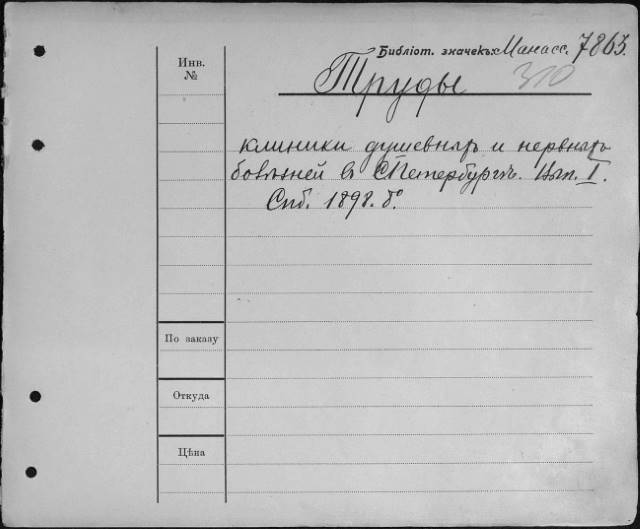 Библіот. значекъ: Манасс. 7863.
Инв.
№
310
Труды
клиники душевныхъ и нервныхъ
болѣзней въ СПетербургѣ. Вып. I.
Спб. 1898. 8º.
По заказу
Откуда
Цѣна